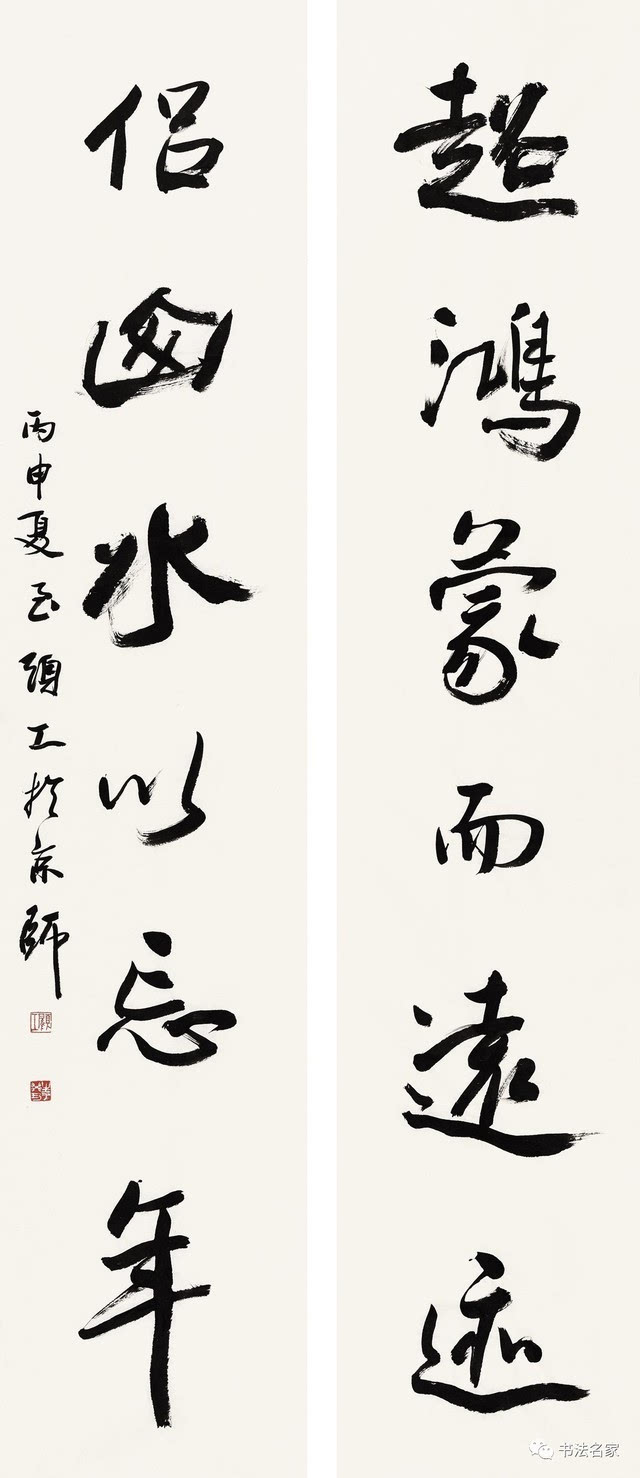 超鴻蒙而遠迹
侶水以忘年
丙申夏工於京師
书法名家